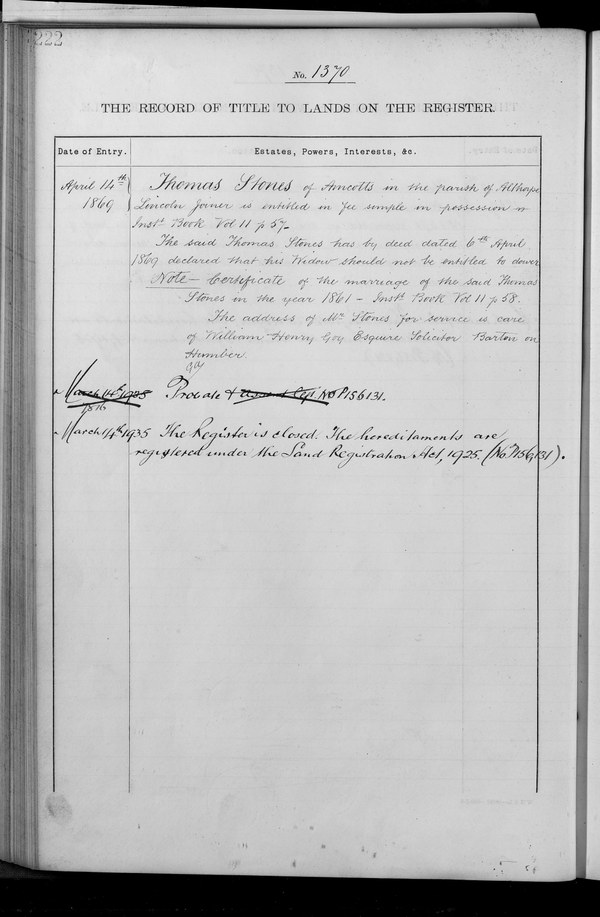 222
No. 1370
THE RECORD OF TITLE TO LANDS ON THE REGISTER.
Date of Entry.
Estates, Powers, Interests, &c.
April 14th 1869
Thomas Stones of Amcotts in the parish of Althorpe
Lincoln Joiner is entitled in fee simple in possession
Instt Book Vol 11 p 57.
The said Thomas Stones has by deed dated 6th April
1869 declared that his Widow should not be entitled to dower
Note – Certificate of the marriage of the said Thomas
Stones in the year 1861 – Instt Book Vol 11 p 58.
The address of Mr Stones for service is care
of William Henry Goy Esquire Solicitor Barton on
Humber.
March 14th 1935
Probate & P156131.
March 14th 1935
The Register is closed. The hereditaments are
registered under the Land Registration Act, 1925. (No P156,131).